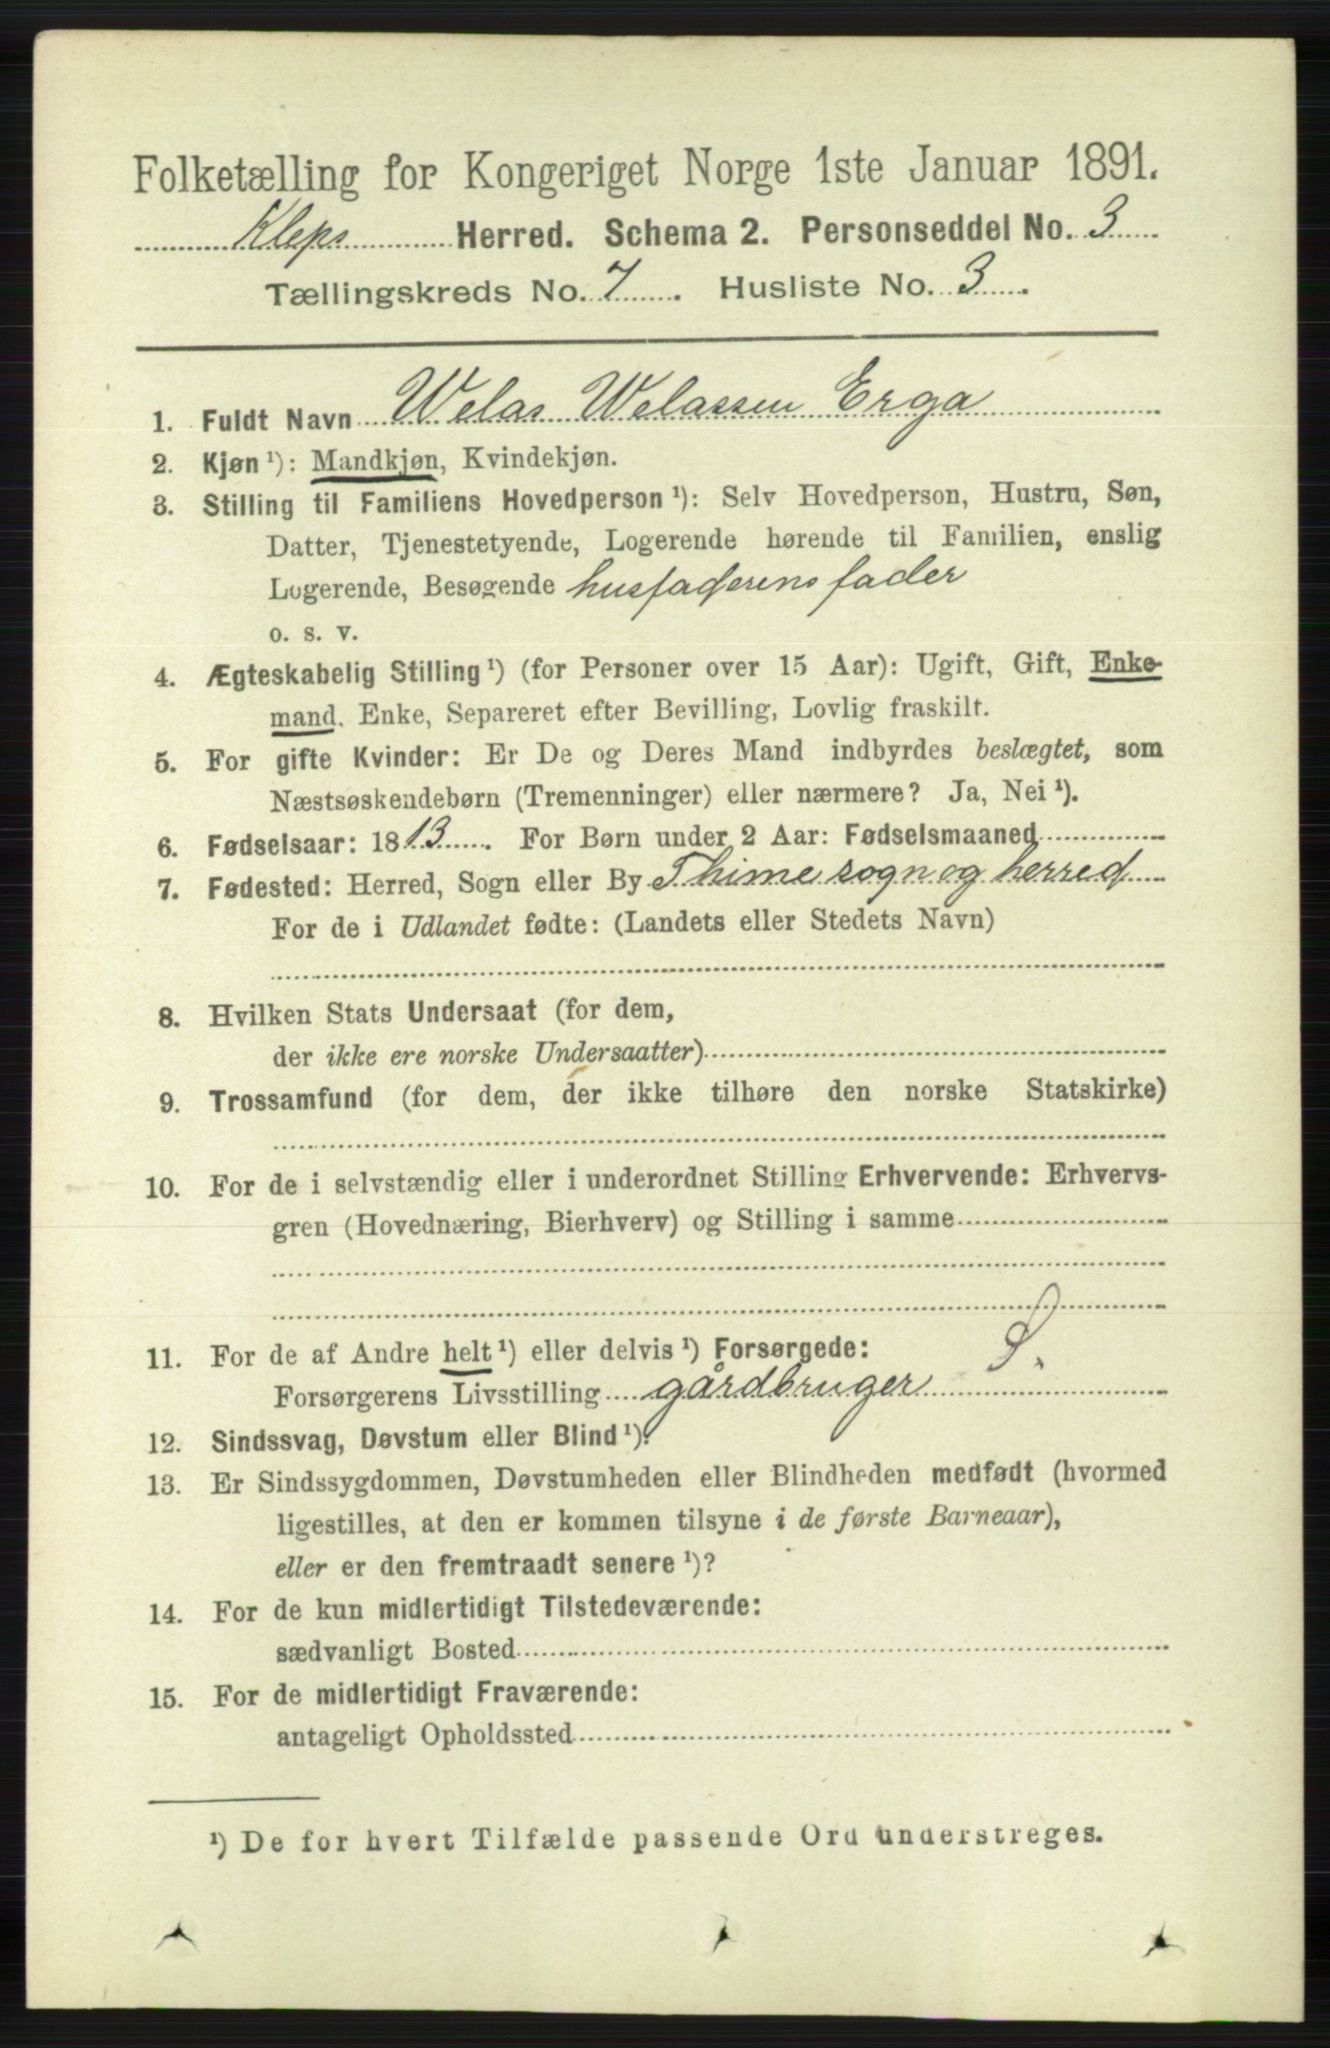 Folketælling for Kongeriget Norge 1ste Januar 1891.
Kleps Herred. Schema 2. Personseddel No. 3
Tællingskreds No. 7. Husliste No. 3.
1. Fuldt Navn Welas Welassen Erga
2. Kjøn ¹): Mandkjøn, Kvindekjøn.
3. Stilling til Familiens Hovedperson ¹): Selv Hovedperson, Hustru, Søn,
Datter, Tjenestetyende, Logerende hørende til Familien, enslig
Logerende, Besøgende husfaderens fader
o. s. v.
4. Ægteskabelig Stilling ¹) (for Personer over 15 Aar): Ugift, Gift, Enke-
mand, Enke, Separeret efter Bevilling, Lovlig fraskilt.
5. For gifte Kvinder: Er De og Deres Mand indbyrdes beslægtet, som
Næstsøskendebørn (Tremenninger) eller nærmere? Ja, Nei ¹).
6. Fødselsaar: 1813. For Børn under 2 Aar: Fødselsmaaned
7. Fødested: Herred, Sogn eller By Thime sogn og herred
For de i Udlandet fødte: (Landets eller Stedets Navn)
8. Hvilken Stats Undersaat (for dem,
der ikke ere norske Undersaatter)
9. Trossamfund (for dem, der ikke tilhøre den norske Statskirke)
10. For de i selvstændig eller i underordnet Stilling Erhvervende: Erhvervs-
gren (Hovednæring, Bierhverv) og Stilling i samme
11. For de af Andre helt ¹) eller delvis ¹) Forsørgede: S.
Forsørgerens Livsstilling gårdbruger
12. Sindssvag, Døvstum eller Blind ¹).
13. Er Sindssygdommen, Døvstumheden eller Blindheden medfødt (hvormed
ligestilles, at den er kommen tilsyne i de første Barneaar),
eller er den fremtraadt senere ¹)?
14. For de kun midlertidigt Tilstedeværende:
sædvanligt Bosted
15. For de midlertidigt Fraværende:
antageligt Opholdssted
¹) De for hvert Tilfælde passende Ord understreges.